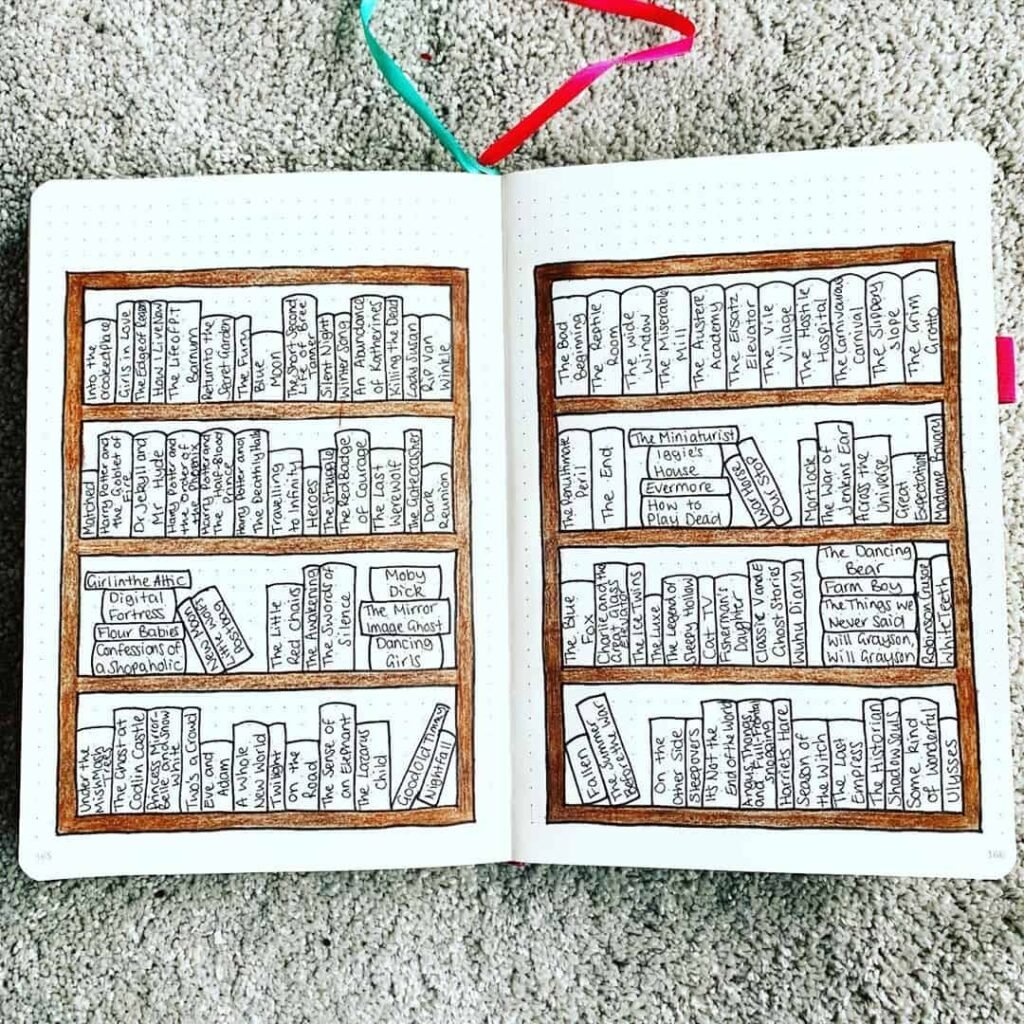 Into the
crooked Place
Girls in Love
The Edge of Reason
How I Live Now
The Life of P.T
Barnum
Return to the
Secret Garden
The Fury
Blue
Moon
The Short Second
Life of Bree
Tanner
Silent Night
Winter Song
An Abundance
of Katherines
Killing the Dead
Lady Susan
Rip Van
Winkle
Matched
Harry Potter and
the Goblet of
Fire
Dr Jekyll and
Mr Hyde
Harry Potter and
the Order of
the Phoenix
Harry Potter and
the Half-Blood
Prince
Harry Potter and
The Deathly Hallows
Travelling
to Infinity
Heroes
The Struggle
The Red Badge
of Courage
The Last
Werewolf
The Gatecrasher
Dark
Reunion
Girl in the Attic
Digital
Fortress
Flour Babies
Confessions of
a Shopaholic
New Moon
Little Wolf
Postbag
The Little
Red Chairs
The Awakening
The Swords of
Silence
Moby
Dick
The Mirror
Image Ghost
Dancing
Girls
Under the
Wishmoley
Trees
The Ghost at
Codlin Castle
Princess Mirror-
Belle and Snow
White
Two's a Crowd
Eve and
Adam
A Whole
New World
Twilight
on the
Road
The Sense of
an Elephant
The Lazarus
Child
Good Old Timmy
Nightfall
365
The Bad
Beginning
The Reptile
Room
The Wide
Window
The Miserable
Mill
The Austere
Academy
The Ersatz
Elevator
The Vile
Village
The Hostile
Hospital
The Carnivorous
Carnival
The Slippery
Slope
The Grim
Grotto
The Penultimate
Peril
The End
The Miniaturist
Iggie's
House
Evermore
How to
Play Dead
War Horse
Our Stop
Mortlock
The War of
Jenkins Ear
Across the
Universe
Great
Expectations
Madame Bovary
The Blue
Fox
Charlie and the
Great Glass
Elevator
The Ice Twins
The Luxe
The Legend of
Sleepy Hollow
Cat TV
Fisherman's
Daughter
Classic V and E
Ghost Stories
Whuhu Diary
The Dancing
Bear
Farm Boy
The Things we
Never Said
Will Grayson,
Will Grayson
Robinson Crusoe
White Teeth
Fallen
The Summer
Before the War
On the
Other Side
Sleepovers
It's Not the
End of the World
Angus, Thongs
and Full-Frontal
Snogging
Harriet's Hare
Season of
the Witch
The Last
Empress
The Historian
Shadow Souls
Some Kind
of Wonderful
Ulysses
366